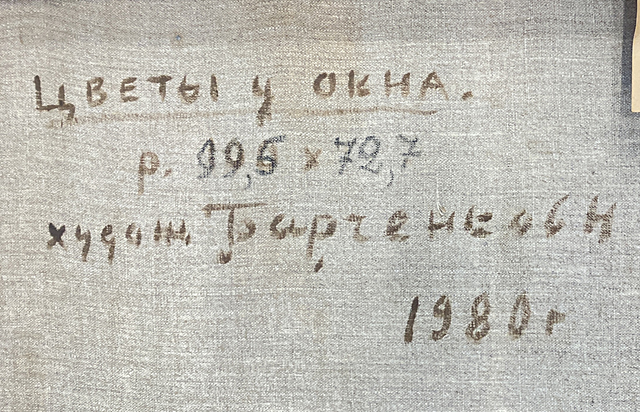 Цветы у окна.
р. 99,5 х 72,7
худож.
1980 г